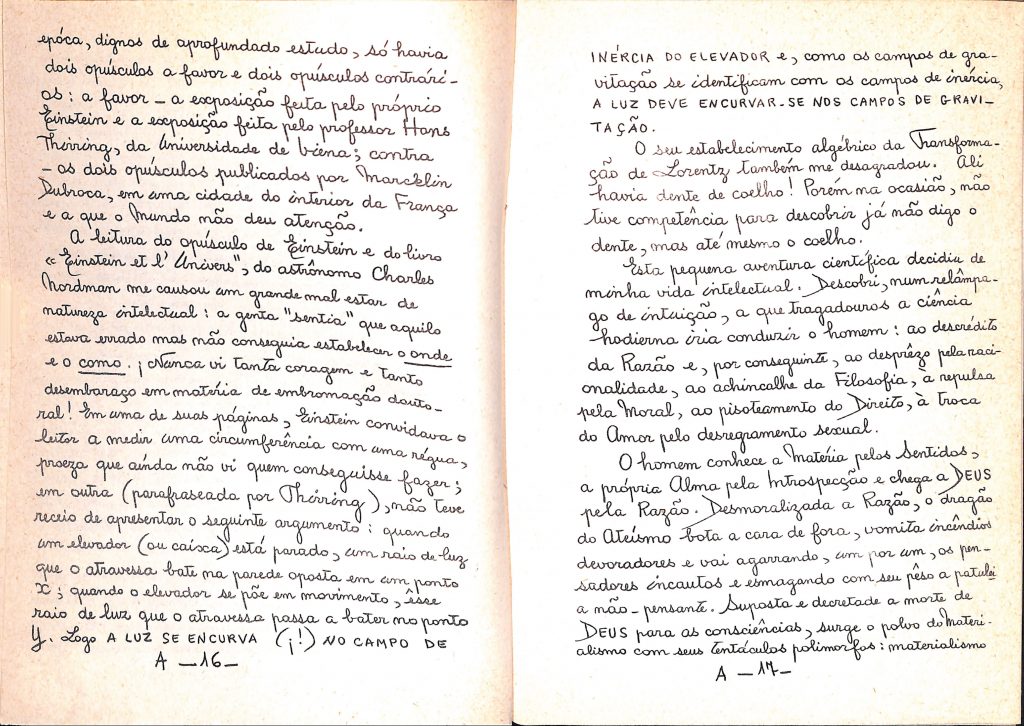 época, dignos de aprofundado estudo, só havia
dois opúsculos a favor e dois opúsculos contrári-
os: a favor — a exposição feita pelo próprio
Einstein e a exposição feita pelo professor Hans
Thirring, da Universidade de Viena; contra
— os dois opúsculos publicados por Marcklin
Dubroca, em uma cidade do interior da França
e a que o Mundo não deu atenção.
A leitura do opúsculo de Einstein e do livro
« Einstein et l' Univers", do astrônomo Charles
Nordman me causou um grande mal estar de
natureza intelectual: a gente "sentia" que aquilo
estava errado mas não conseguia estabelecer o onde
e o como. ¡Nunca vi tanta coragem e tanto
desembaraço em matéria de embromação douto-
ral! Em uma de suas páginas, Einstein convidava o
leitor a medir uma circunferência com uma régua,
proeza que ainda não vi quem conseguisse fazer;
em outra (parafraseada por Thirring), não teve
receio de apresentar o seguinte argumento: quando
um elevador (ou caixa) está parado, um raio de luz
que o atravessa bate na parede oposta em um ponto
X; quando o elevador se põe em movimento, êsse
raio de luz que o atravessa passa a bater no ponto
Y. Logo A LUZ SE ENCURVA (¡!) NO CAMPO DE
A —16—
INÉRCIA DO ELEVADOR e, como os campos de gra-
vitação se identificam com os campos de inércia,
A LUZ DEVE ENCURVAR-SE NOS CAMPOS DE GRAVI-
TAÇÃO.
O seu estabelecimento algébrico da Transforma-
ção de Lorentz também me desagradou. Ali
havia dente de coelho! Porém na ocasião, não
tive competência para descobrir já não digo o
dente, mas até mesmo o coelho.
Esta pequena aventura científica decidiu de
minha vida intelectual. Descobri, num relâmpa-
go de intuição, a que tragadouros a ciência
hodierna iria conduzir o homem: ao descrédito
da Razão e, por conseguinte, ao desprêzo pela raci-
onalidade, ao achincalhe da Filosofia, à repulsa
pela Moral, ao pisoteamento do Direito, à troca
do Amor pelo desregramento sexual.
O homem conhece a Matéria pelos Sentidos,
a própria Alma pela Introspecção e chega a DEUS
pela Razão. Desmoralizada a Razão, o dragão
do Ateísmo bota a cara de fora, vomita incêndios
devoradores e vai agarrando, um por um, os pen-
sadores incautos e esmagando com seu pêso a patuléi
a não-pensante. Suposta e decretada a morte de
DEUS para as consciências, surge o polvo do Materi-
alismo com seus tentáculos polimorfos: materialismo
A —17—